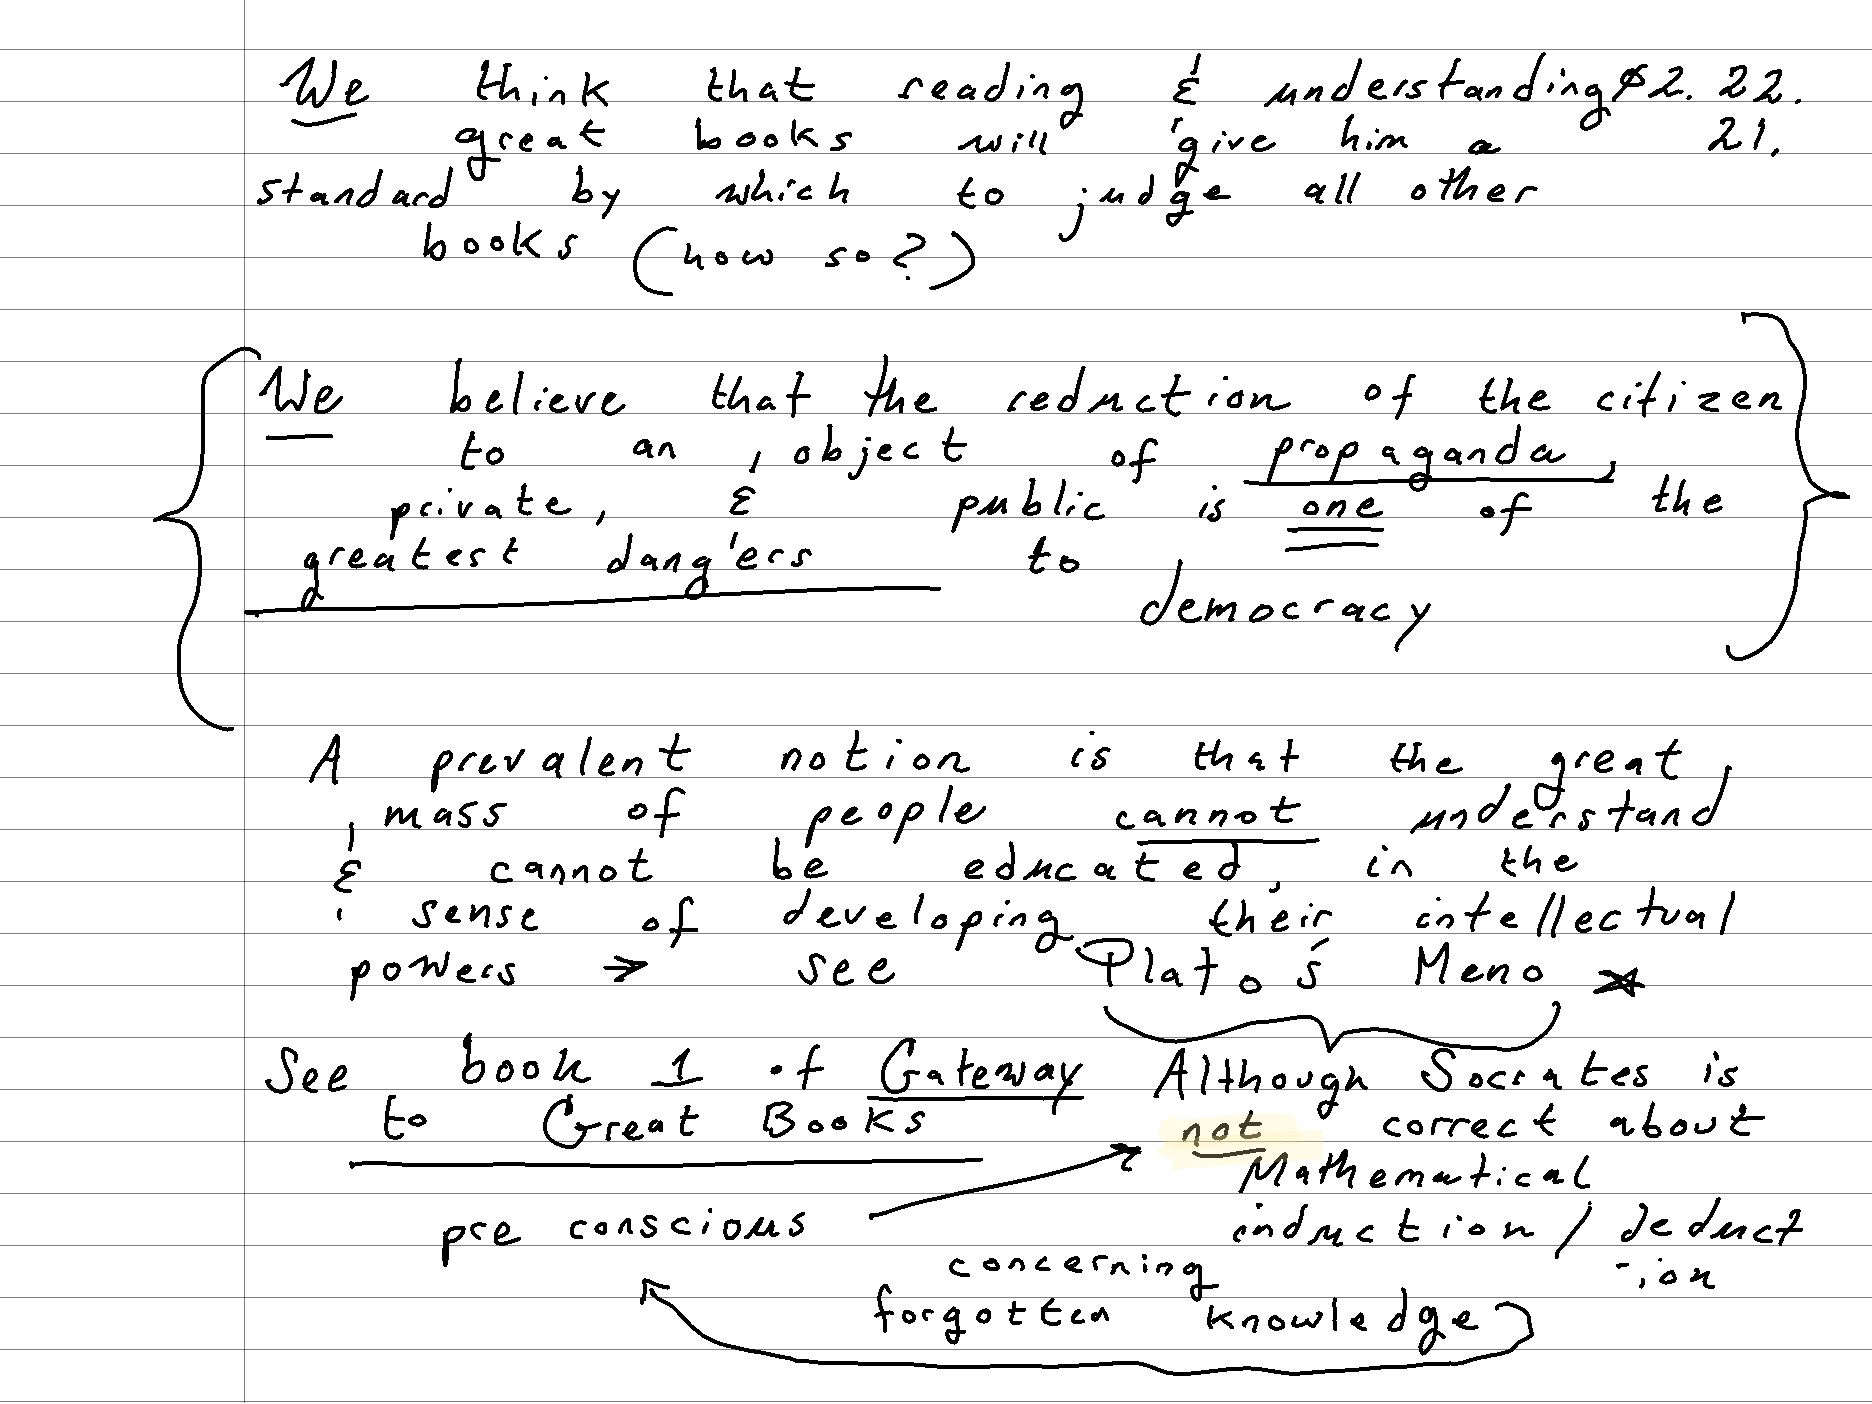 We think that reading & understanding 02. 22.
great books will give him a 21.
standard by which to judge all other
books (how so?)
We believe that the reduction of the citizen
to an object of propaganda,
private, & public is one of the
greatest dangers to
democracy
A prevalent notion is that the great
mass of people cannot understand
& cannot be educated, in the
sense of developing their intellectual
powers → see Plato's Meno ☆
See book 1 of Gateway
to Great Books
Although Socrates is
not correct about
Mathematical
induction / deduct
-ion
pre conscious
concerning
forgotten knowledge